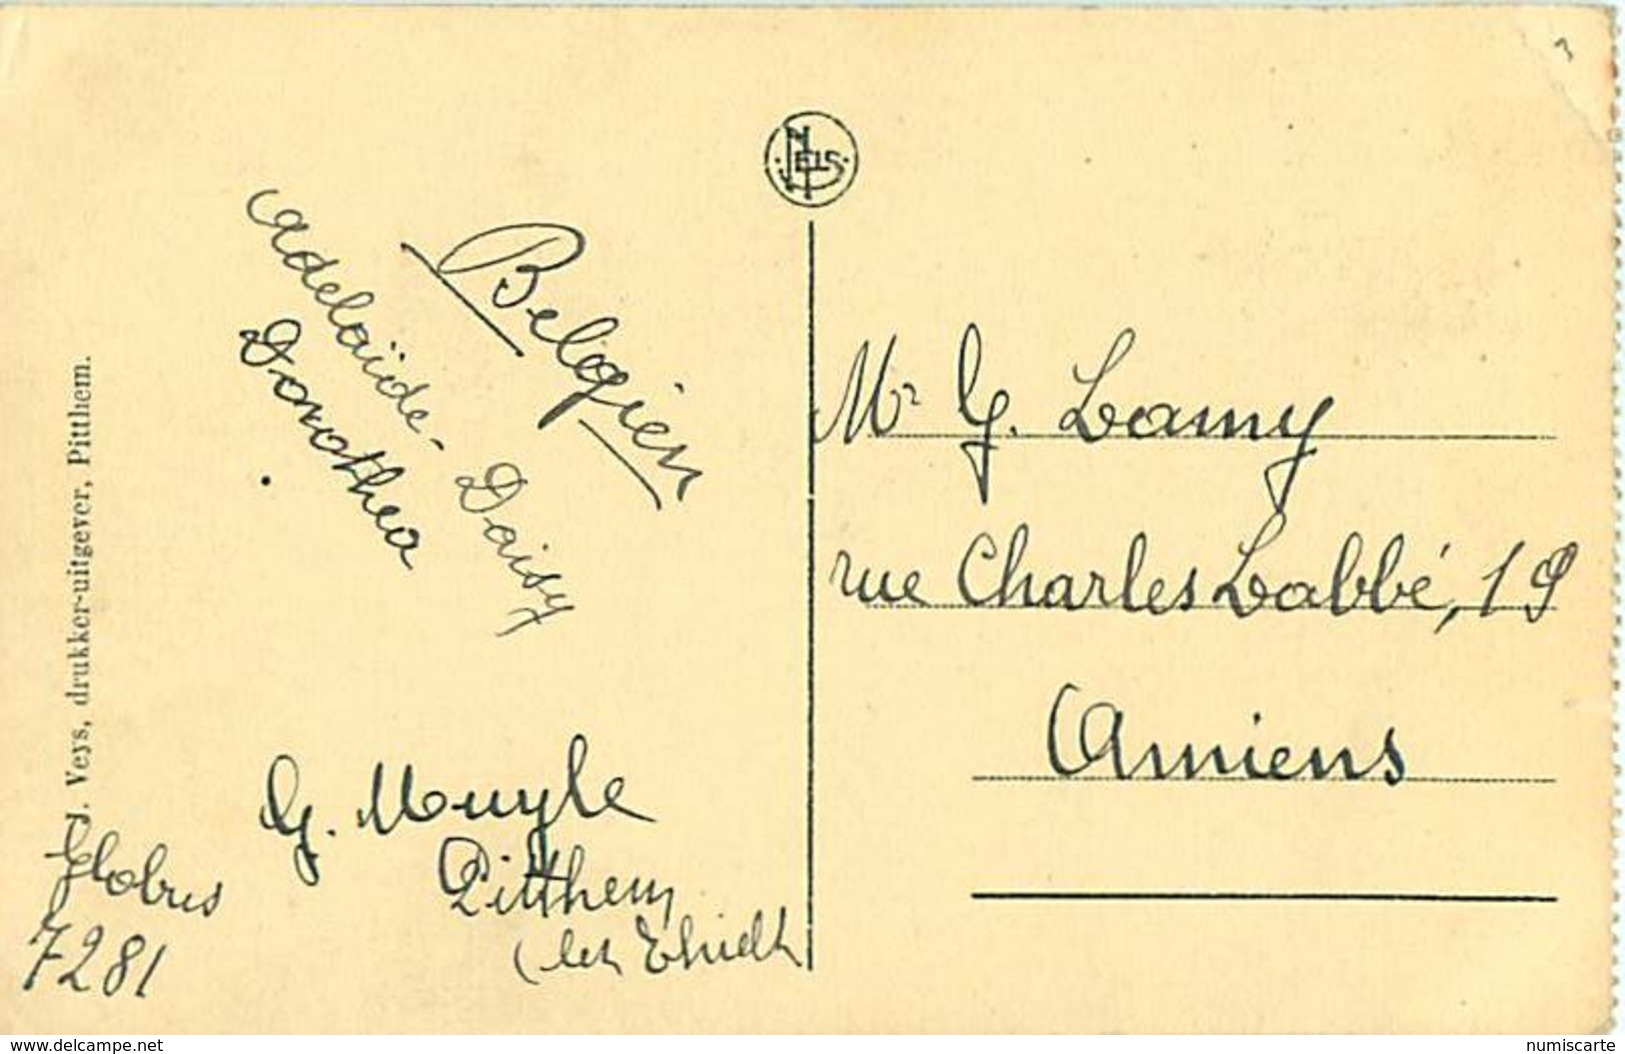 NELS
Adelaïde - Daisy
Dorothea
Belgien
J. Veys, drukker-uitgever, Pitthem.
G. Muyle
Pitthem
Globus
7281
Mr G. Lamy
rue Charles Labbé, 19
Amiens
www.delcampe.net
numiscarte